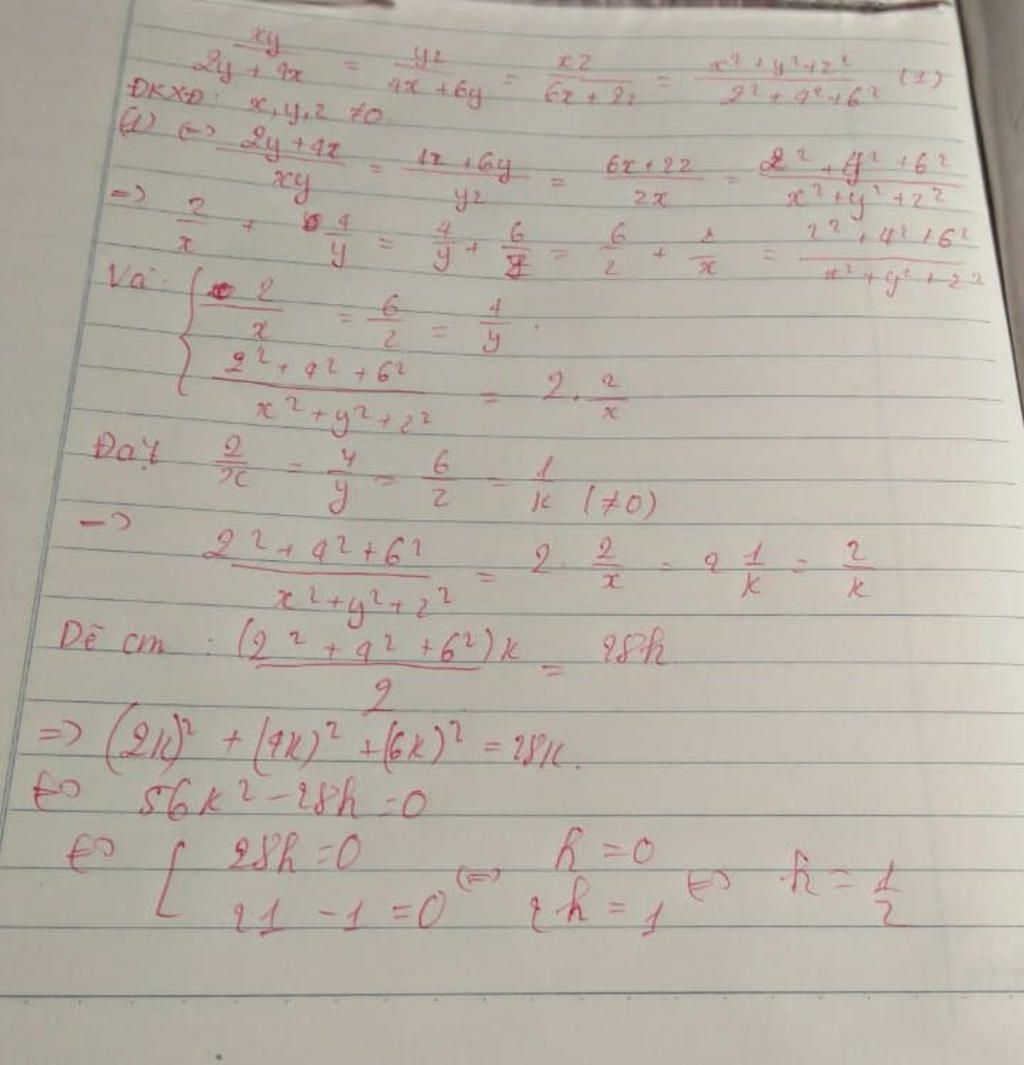 xy/(2y + 4x) = yz/(4x + 6y) = xz/(6x + 2z) = (x² + y² + z²)/(2² + 4² + 6²) (1)
ĐKXĐ: x, y, z ≠0
(1) <=> (2y + 4x)/xy = (4z + 6y)/yz = (6x + 2z)/zx = (2² + 4² + 6²)/(x² + y² + z²)
=> 2/x + 4/y = 4/y + 6/z = 6/z + 2/x = (2² + 4² + 6²)/(x² + y² + z²)
Và: { 2/x = 6/z = 4/y.
(2² + 4² + 6²)/(x² + y² + z²) = 2. 2/x
Đặt 2/x = 4/y = 6/z = 1/k (≠0)
=> (2² + 4² + 6²)/(x² + y² + z²) = 2. 2/x = 2 1/k = 2/k
Dễ cm : (2² + 4² + 6²)k/2 = 28k
=> (2k)² + (4k)² + (6k)² = 28k.
<=> 56k² - 28k = 0
<=> [ 28k = 0 <=> k = 0 <=> k = 1/2
21 - 1 = 0 2k = 1